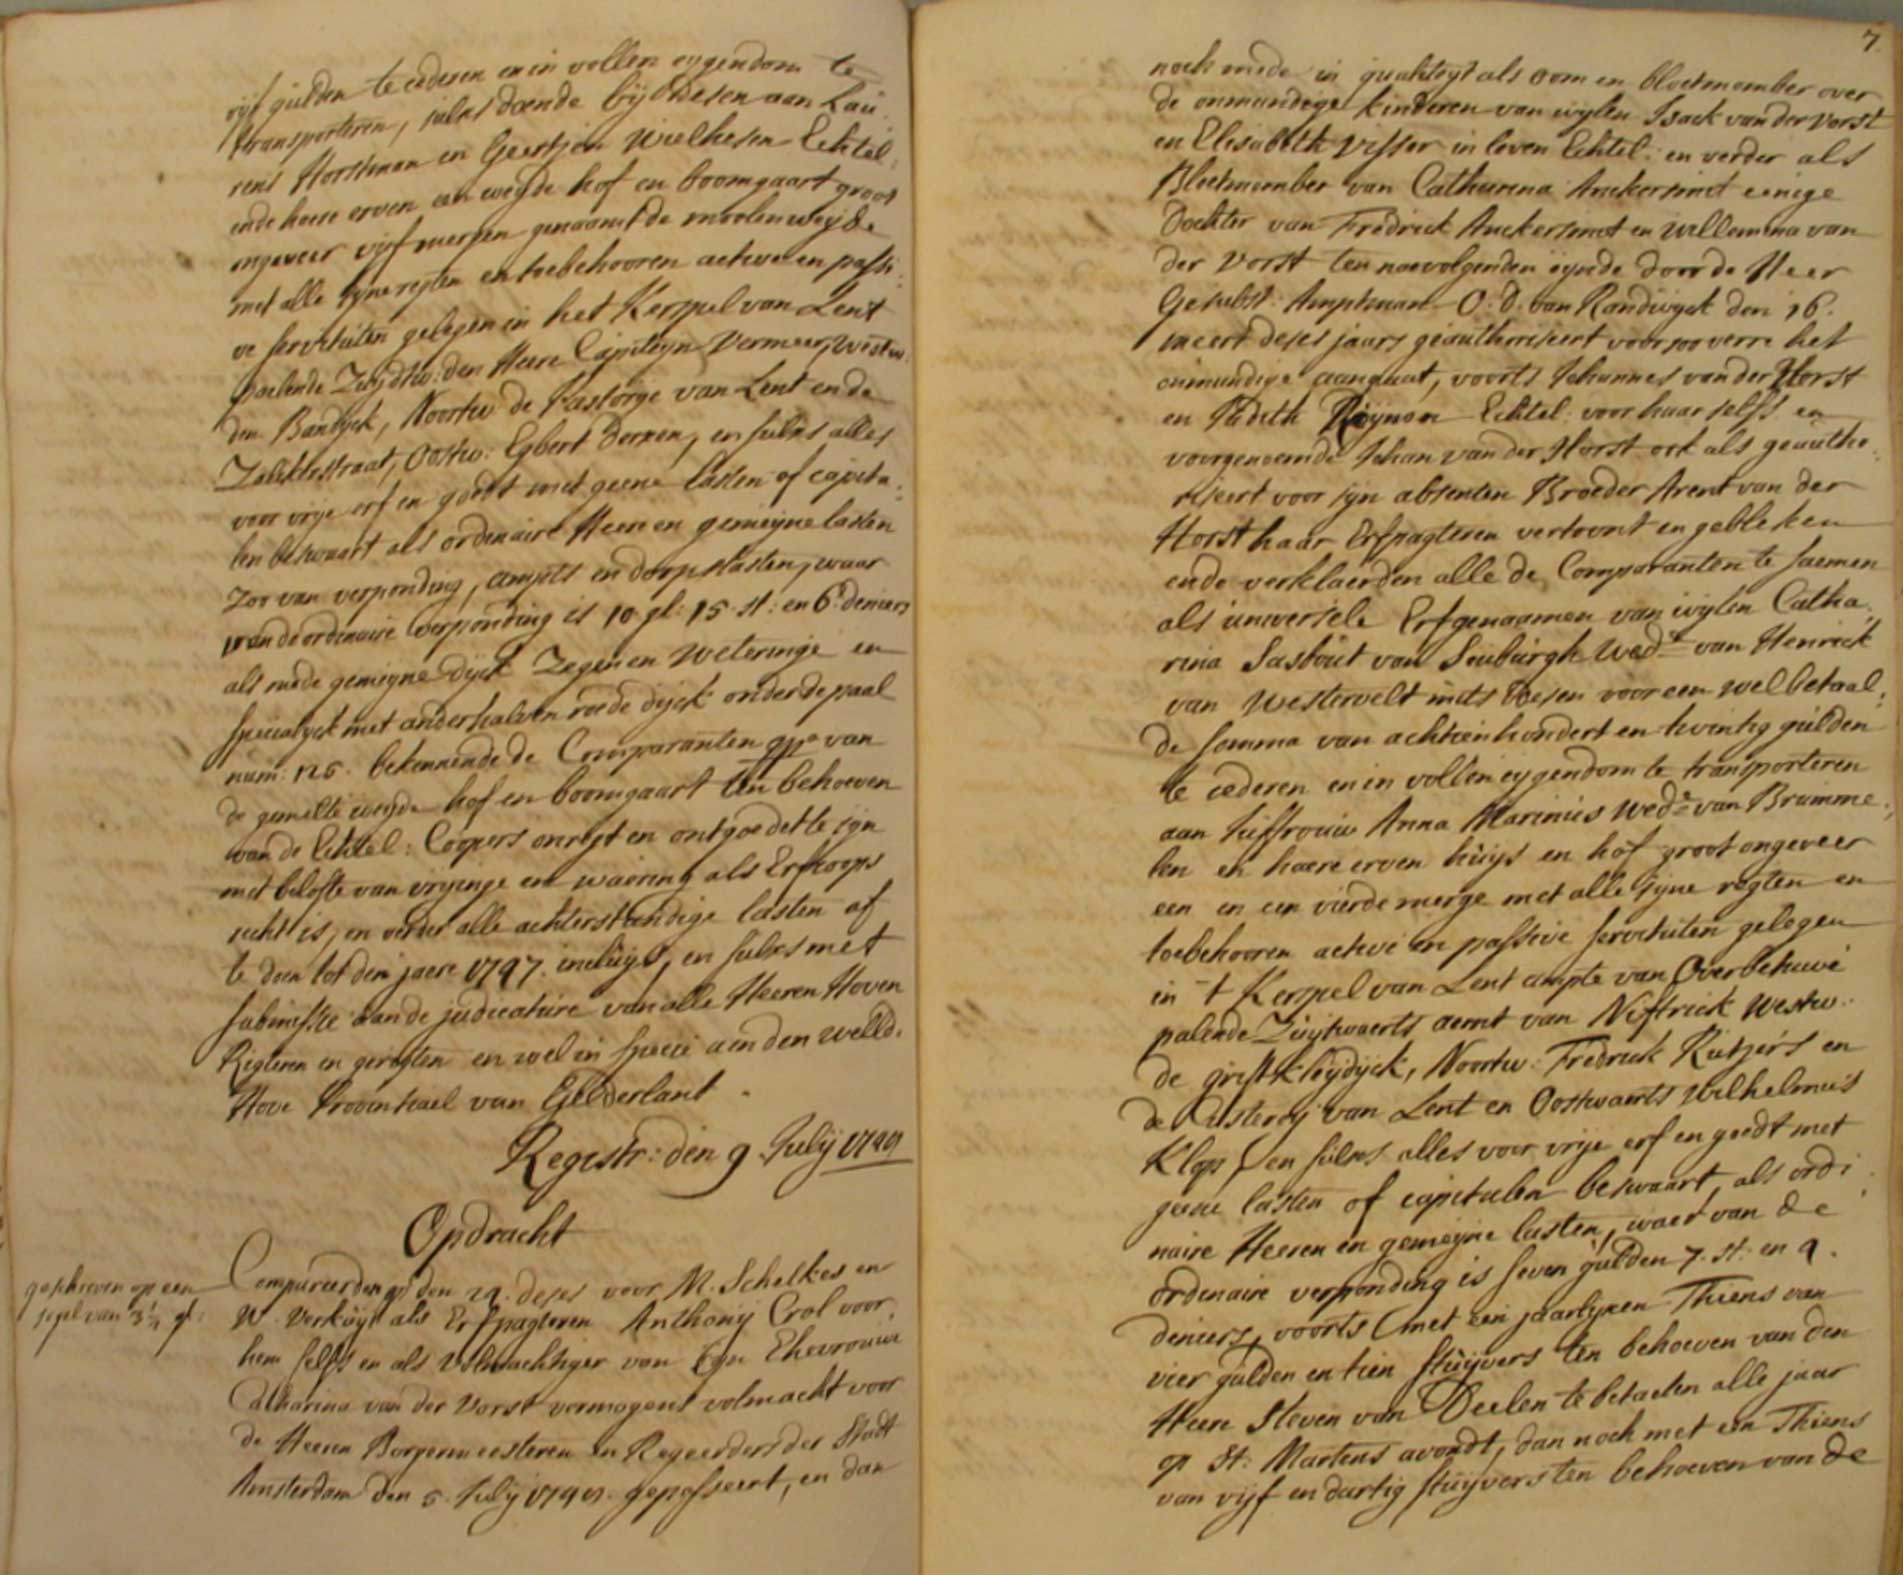 vijf gulden te cederen en in vollen eygendom te
transporteren, sulx doende bij desen aan Lau:
rens Horstman en Geertjen Wielhesen Echtel:
ende haere erven een weyde hof en boomgaart groot
ongeveer vijf mergen genaamt de moolenweyde
met alle syne regten en toebehooren active en passi:
ve servituten gelegen in het Kerspel van Lent
palende Zuydtw: den Heere Capiteyn Vermeer, Westw:
den Bandyck, Noortw: de Pastorye van Lent en de
straat, Oostw: Egbert Dornen, en sulx alles
voor vrije erf en goedt met geene lasten of capita:
len beswaart als ordinaire Heere en gemeyne lasten
zoo van verponding, ampts en dorpslasten, waar
van de ordinaire verponding is 10 gl: 15 st: en 6 deniers
als mede gemeyne dyck Zegen en weteringe en
specialyck met anderhalven roede dyck onder de paal
num: 125. bekennende de Comparanten van
de gemelte weyde hof en boomgaart ten behoeven
van de Echtel: Coopers onregt en ontgoedet te syn
met belofte van vryinge en waering als Erfkoops
recht is, en verder alle achterstendige lasten af
te doen tot den jaere 1747 incluys, en sulx met
submissie aan de judicature van alle Heeren Hoven
Rigteren en geregten en wel in specie aen den welEd.
Hove Provintiael van Gelderlant.
Registr: den 9 July 1749
Opdracht
geschreven op een
segel van 3 1/4 gl:
Compareerden den 21. deses voor M. Schelkes en
W. Verkuyl als Erfpagteren Anthonij Crol voor
hem selfs en als Volmachtiger van syn Ehevrouwe
Catharina van der Vorst vermogens volmacht voor
de Heeren Borgermeesteren en Regeerders der Stadt
Amsterdam den 5. July 1749. gepasseert, en dan
7.
noch mede in qualiteyt als oom en bloetmomber over
de onmundige kinderen van wylen Isack van der Vorst
en Elisabeth Visser in leven Echtel: en verder als
Bloetmomber van Catharina Anckersmit eenige
Dochter van Fredrick Anckersmit en Willemina van
der Vorst ten naevolgenden eynde door de Heer
Gesubst: Amptman O: D. van Randwyck den 16.
meert deses jaars geauthoriseert voor soo verre het
onmundige aangaat, voorts Johannes van der Horst
en Judith Reynon Echtel: voor haar selfs en
voorgenoemde Johan van der Horst ook als geautho:
riseert voor syn absenten Broeder Arent van der
Horst haar Erfpagteren vertoont en gebleken
ende verklaerden alle de Comparanten te saemen
als universele Erfgenaamen van wylen Catha:
rina Sasbout van Suyburgh Wede van Henrick
van Westervelt mits desen voor een wel betaal:
de somma van achtienhondert en twintig gulden
te cederen en in vollen eygendom te transporteren
aan Juffrouw Anna Marinus Wede van Brumme:
len en haere erven huys en hof groot ongeveer
een en een vierde merge met alle syne regten en
toebehooren active en passive servituten gelegen
in 't Kerspel van Lent ampte van Overbetuwe
palende Zuytwaerts aent van Niftrick Westw:
de grift kleydyck, Noortw: Fredrick Rutjers en
de Custery van Lent en Oostwaerts Wilhelmus
Klop, en sulx alles voor vrije erf en goedt met
geene lasten of capitalen beswaart, als ordi:
naire Heeren en gemeyne lasten, waer van de
ordinaire verponding is seven gulden 7. st: en 9.
deniers, voorts met een jaarlyxen Thiens van
vier gulden en tien stuyvers ten behoeven van den
Heere Steven van Deelen te betaelen alle jaar
op St: Martens avondt, dan noch met een Thiens
van vijf en dartig stuyvers ten behoeven van de